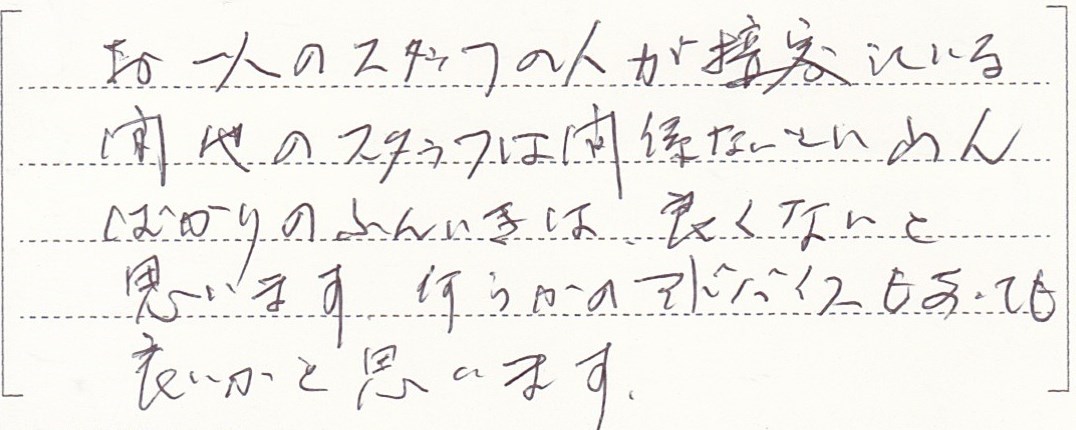 お一人のスタッフの人が接客している
間他のスタッフは関係ないといわん
ばかりのふんいきは、良くないと
思います。何らかのアドバイスもあっても
良いかと思います。